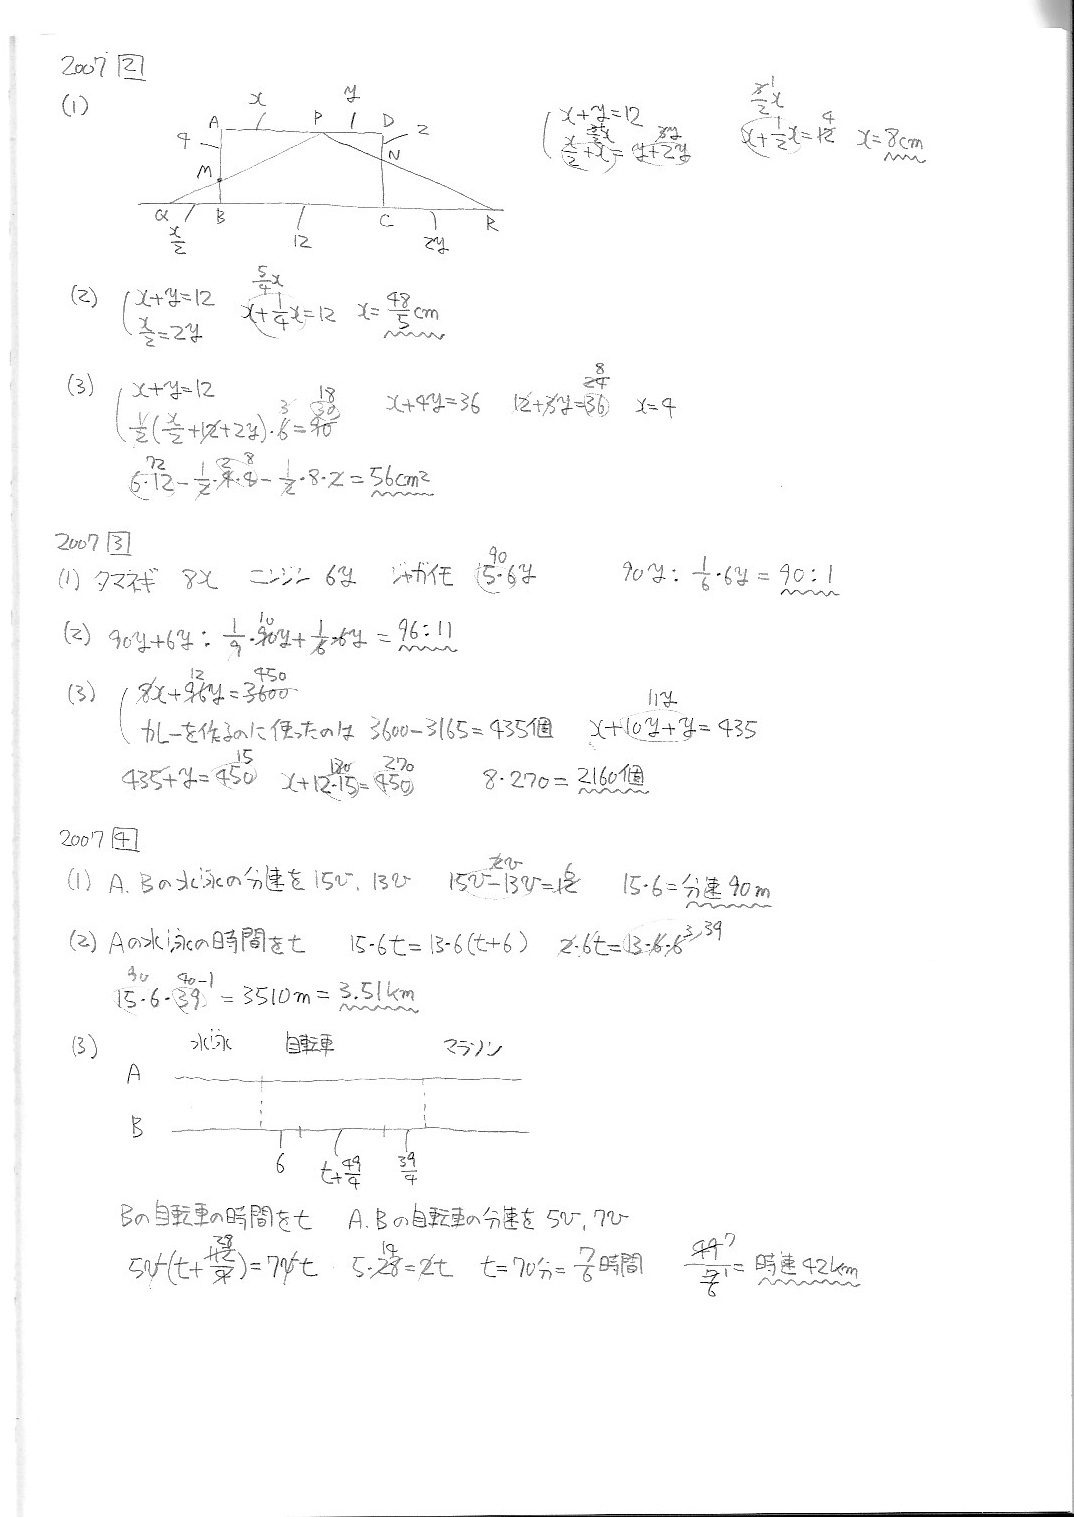 2007 [2]
(1)
x y
A P D
4 2
M N
Q B C R
x/2 12 2y
x+y=12
x/2+x=y+2y 3/2x 3y
x+1/2x=12 3/2x 4 x=8cm
(2) x+y=12 5/4x
x/2=2y x+1/4x=12 x=48/5cm
(3) x+y=12 x+4y=36 12+3y=36 24 8 x=4
1/2(x/2+12+2y)・6=90 3 30 18
6・12-1/2・4・8-1/2・8・2=56cm² 72 2 8
2007 [3]
(1) タマネギ 8x ニンジン 6y ジャガイモ 15・6y 90 90y:1/6・6y=90:1
(2) 90y+6y:1/9・90y+1/6・6y=96:11 10
(3) 8x+96y=3600 12 450
カレーを作るのに使ったのは 3600-3165=435個 x+10y+y=435 11y
435+y=450 15 x+12・15=450 180 270 8・270=2160個
2007 [4]
(1) A.Bの水泳の分速を15v, 13v 15v-13v=12 2v 6 15・6=分速90m
(2) Aの水泳の時間をt 15・6t=13・6(t+6) 2・6t=13・6・6 3 39
15・6・39=3510m=3.51km 90 40-1
(3) 水泳 自転車 マラソン
A
B
6 t+49/4 39/4
Bの自転車の時間をt A.Bの自転車の分速を5v, 7v
5v(t+112/4)=7vt 28 5・28=2t 14 t=70分=7/6時間 49/(7/6)=時速42km 7 1